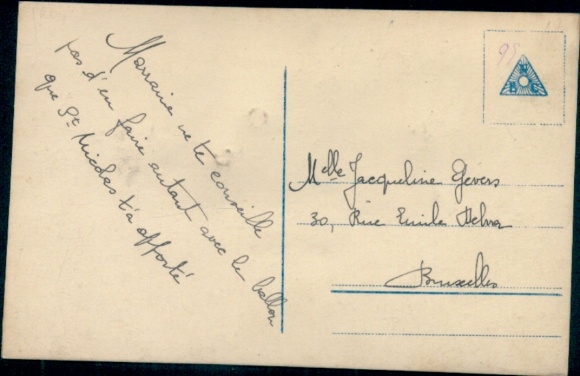 Marraine ne te conseille
pas d'en faire autant avec le ballon
que St. Nicolas t'a apporté
98
Melle Jacqueline Gevers
30, Rue Emile
Bruxelles